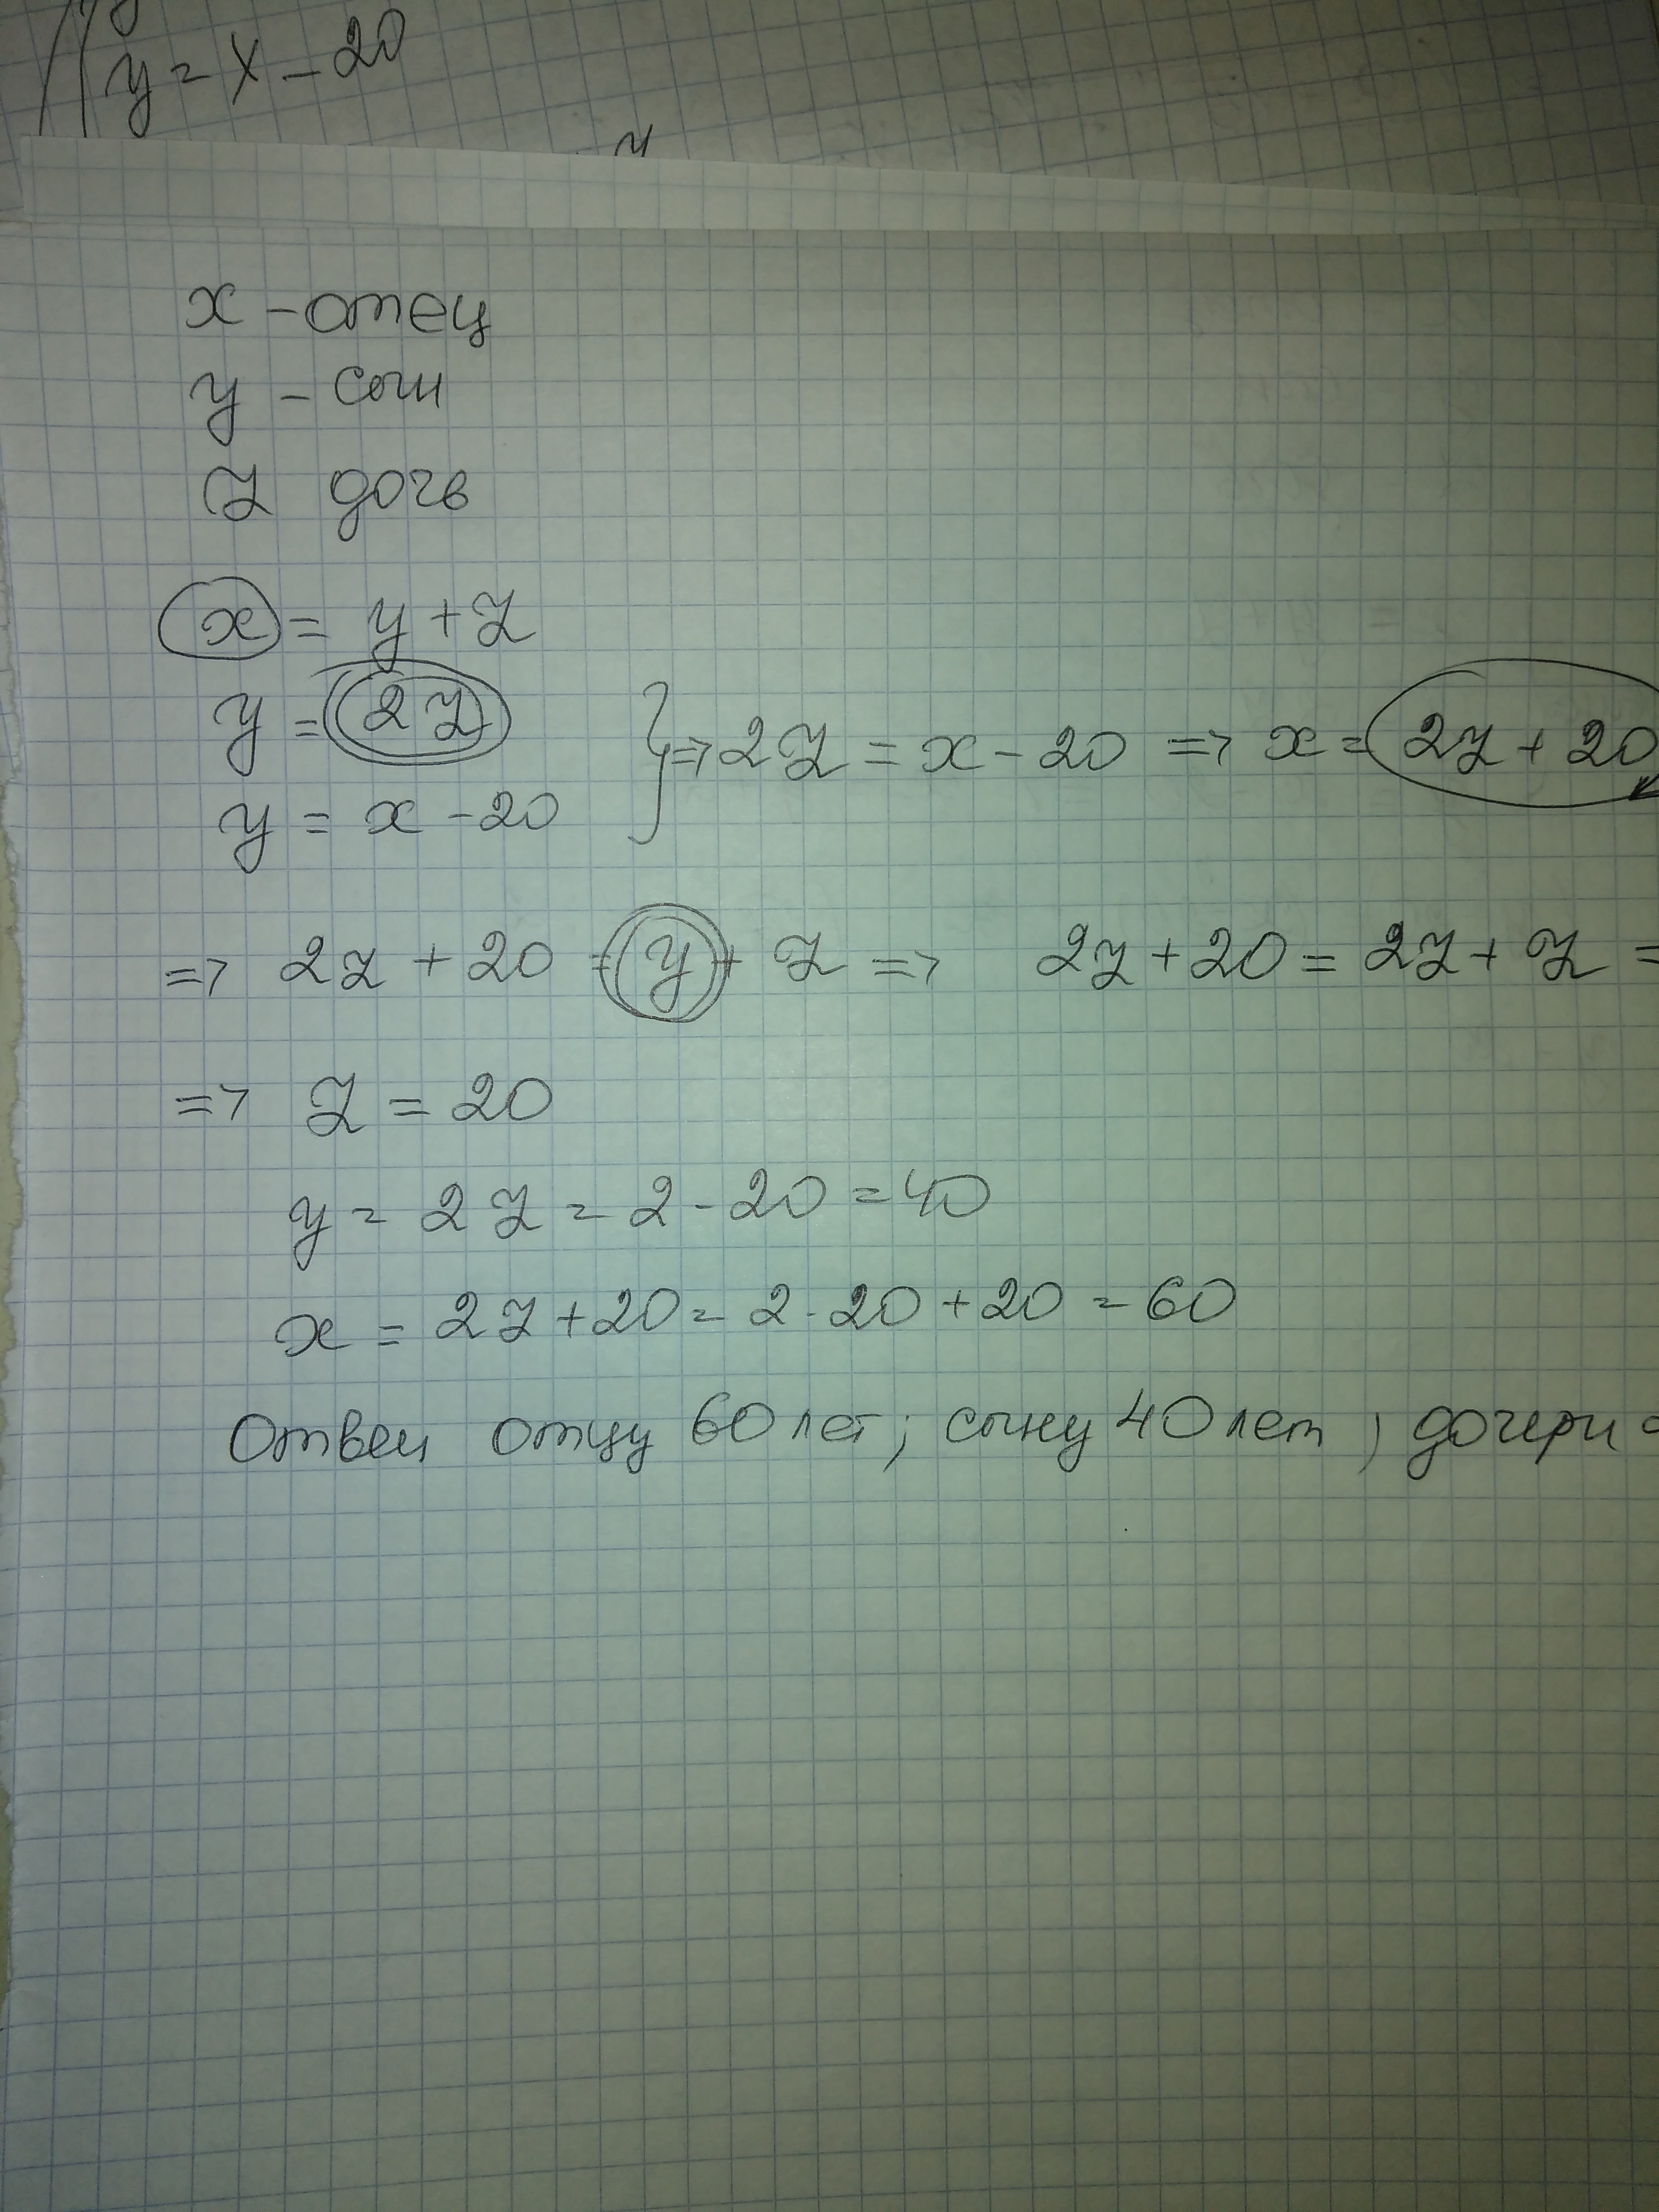 y = x - 20
x - отец
y - сын
z дочь
x = y + z
y = 2z
} => 2z = x - 20 => x = 2z + 20
y = x - 20
=> 2z + 20 = y + z => 2z + 20 = 2z + z =
=> z = 20
y = 2z = 2 · 20 = 40
x = 2z + 20 = 2 · 20 + 20 = 60
Ответ отцу 60 лет; сыну 40 лет, дочери